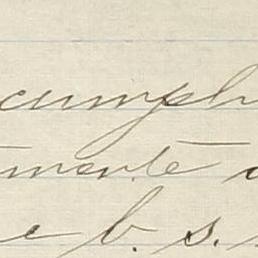 cumph
mente
e b. s.